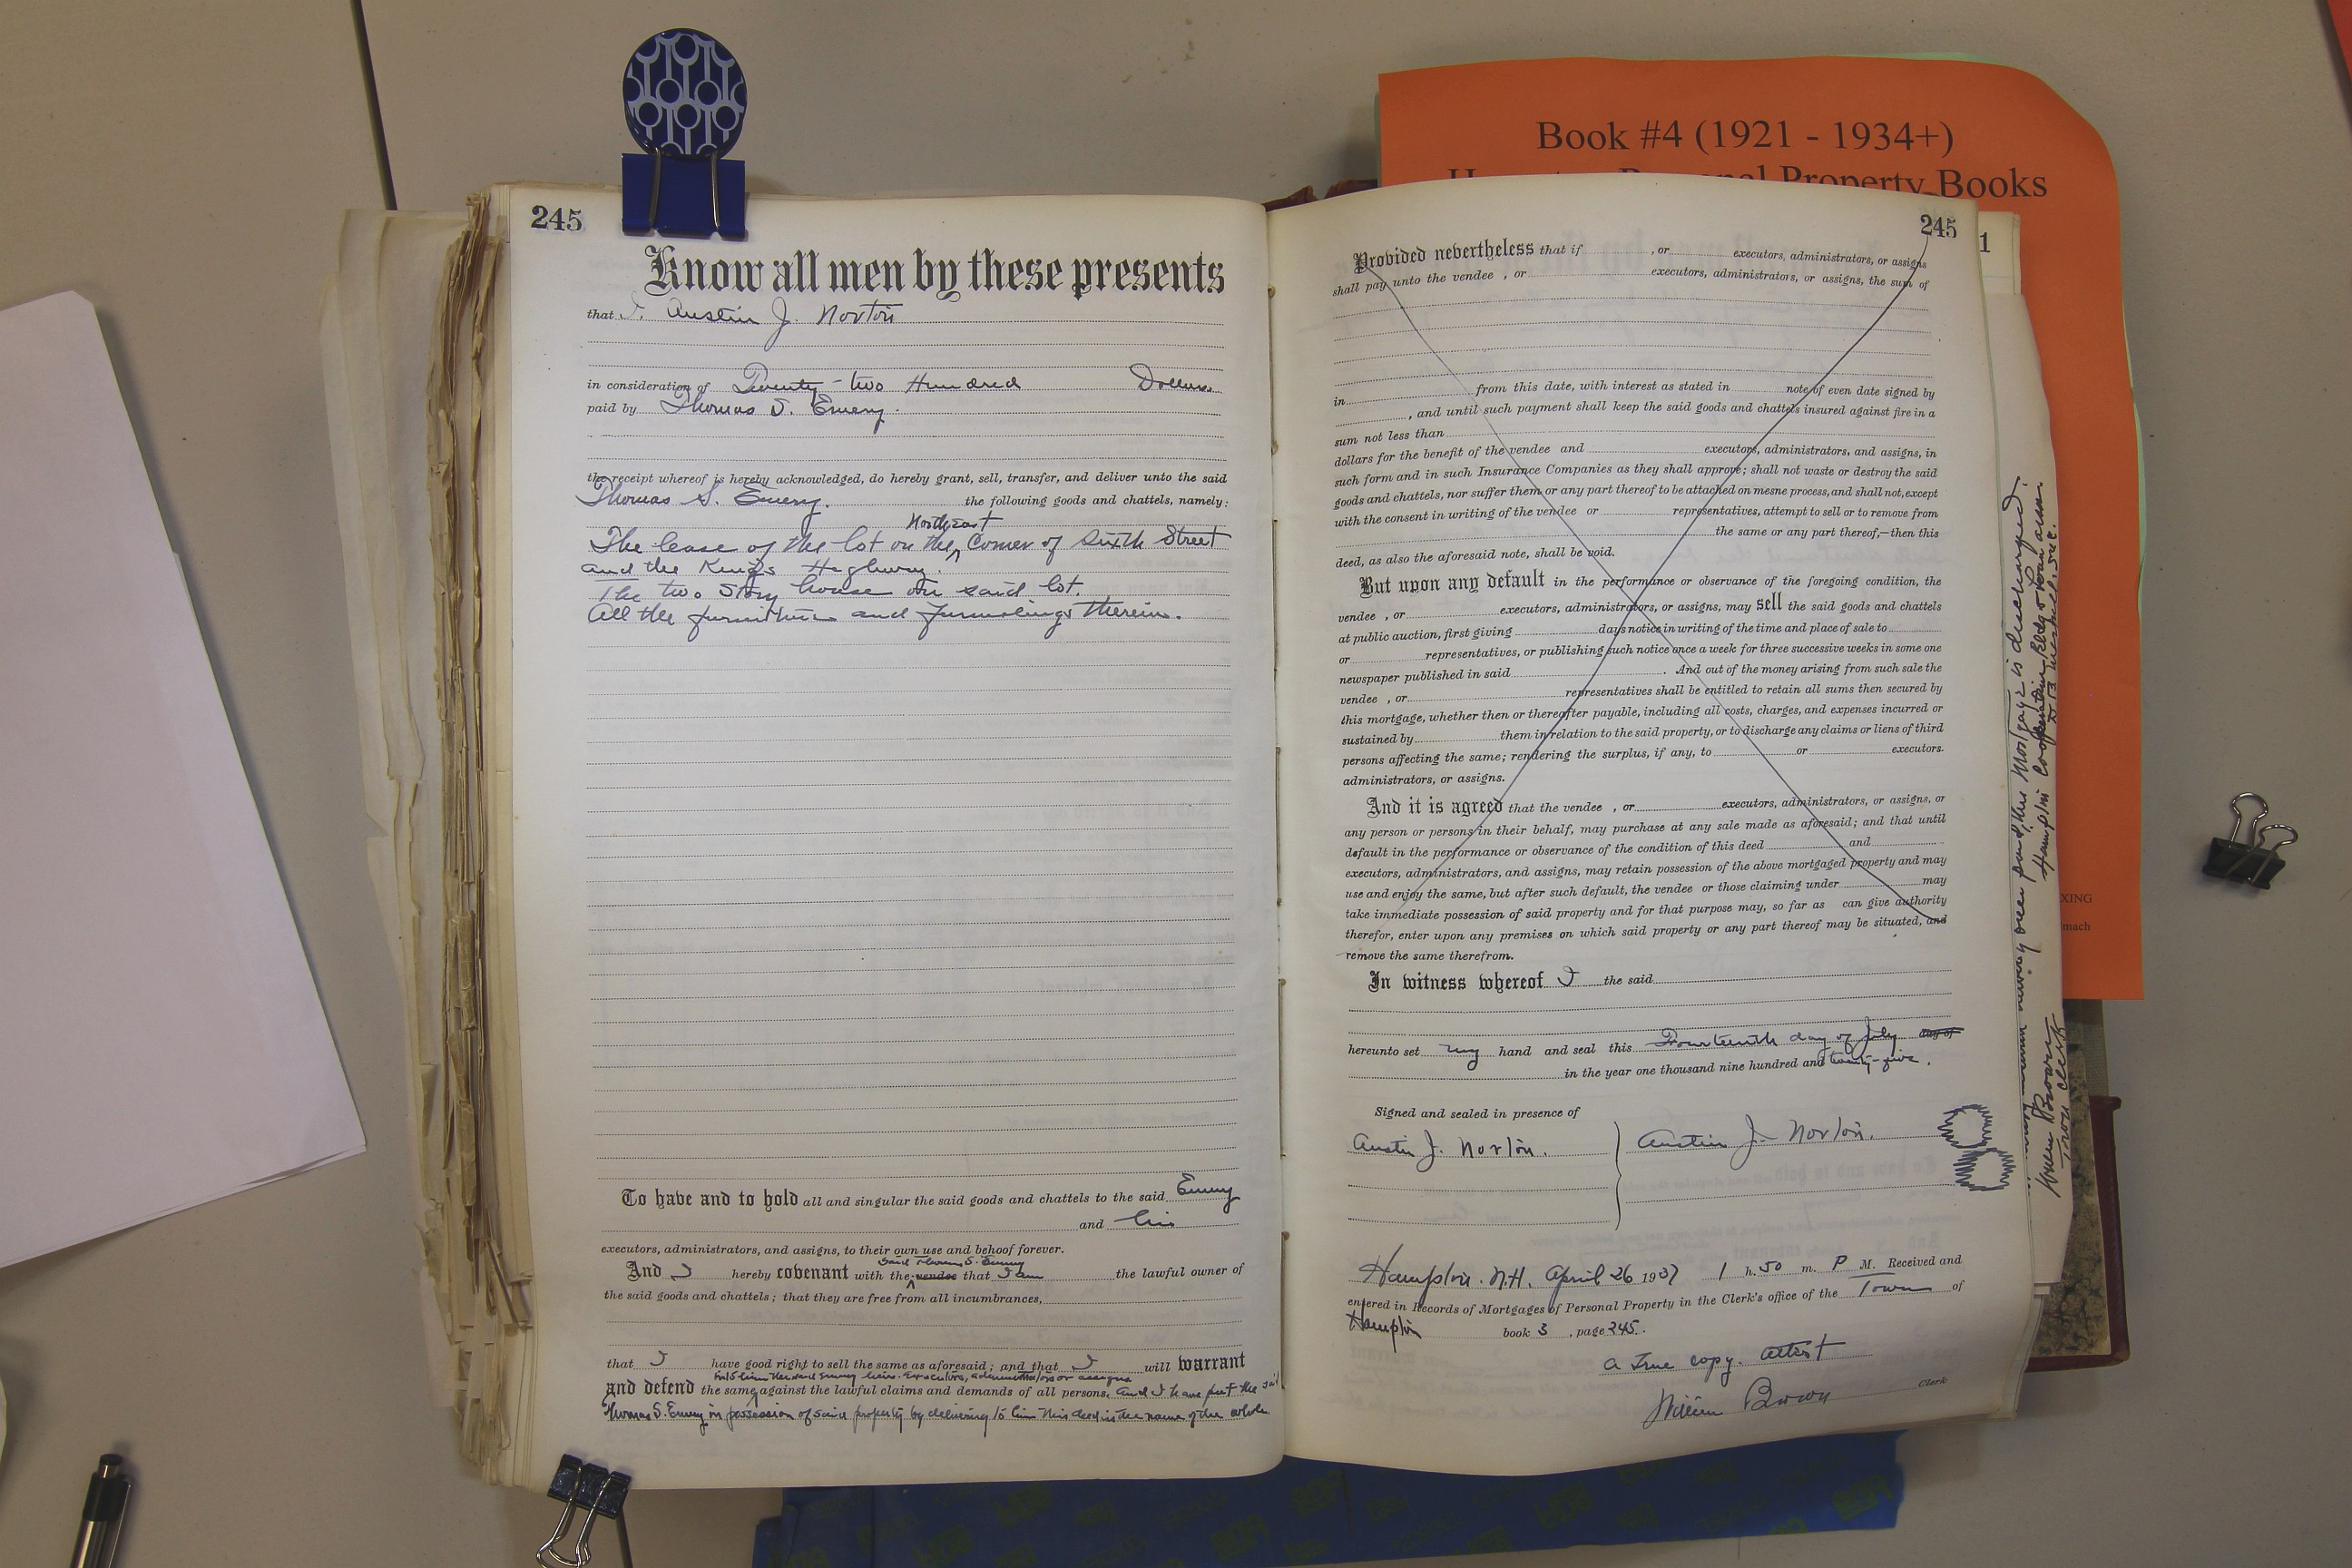 Book #4 (1921 - 1934+)
Personal Property Books
245
Know all men by these presents
that I. Austin J. Norton
in consideration of Twenty-two Hundred Dollars.
paid by Thomas S. Emery.
the receipt whereof is hereby acknowledged, do hereby grant, sell, transfer, and deliver unto the said
Thomas S. Emery. the following goods and chattels, namely:
Northeast
The lease of the lot on the ^ Corner of Sixth Street
and the Kings Highway.
The two Story house on said lot.
All the furniture and furnishings therein.
To have and to hold all and singular the said goods and chattels to the said Emery
and his
executors, administrators, and assigns, to their own use and behoof forever.
said Thomas S. Emery
And I hereby covenant with the ^ vendee that I am the lawful owner of
the said goods and chattels; that they are free from all incumbrances,
that I have good right to sell the same as aforesaid; and that I will warrant
heirs. Executors, administrators or assigns
and defend the same ^ against the lawful claims and demands of all persons, and I have put the said
Thomas S. Emery in possession of said property by delivering to him this deed in the name of the whole
245
1
Provided nevertheless that if , or executors, administrators, or assigns
shall pay unto the vendee , or executors, administrators, or assigns, the sum of
in from this date, with interest as stated in note of even date signed by
, and until such payment shall keep the said goods and chattels insured against fire in a
sum not less than
dollars for the benefit of the vendee and executors, administrators, and assigns, in
such form and in such Insurance Companies as they shall approve; shall not waste or destroy the said
goods and chattels, nor suffer them or any part thereof to be attached on mesne process, and shall not, except
with the consent in writing of the vendee or representatives, attempt to sell or to remove from
the same or any part thereof,—then this
deed, as also the aforesaid note, shall be void.
But upon any default in the performance or observance of the foregoing condition, the
vendee , or executors, administrators, or assigns, may sell the said goods and chattels
at public auction, first giving days notice in writing of the time and place of sale to
or representatives, or publishing such notice once a week for three successive weeks in some one
newspaper published in said . And out of the money arising from such sale the
vendee , or representatives shall be entitled to retain all sums then secured by
this mortgage, whether then or thereafter payable, including all costs, charges, and expenses incurred or
sustained by them in relation to the said property, or to discharge any claims or liens of third
persons affecting the same; rendering the surplus, if any, to or executors.
administrators, or assigns.
And it is agreed that the vendee , or executors, administrators, or assigns, or
any person or persons in their behalf, may purchase at any sale made as aforesaid; and that until
default in the performance or observance of the condition of this deed and
executors, administrators, and assigns, may retain possession of the above mortgaged property and may
use and enjoy the same, but after such default, the vendee or those claiming under may
take immediate possession of said property and for that purpose may, so far as can give authority
therefor, enter upon any premises on which said property or any part thereof may be situated, and
remove the same therefrom.
In witness whereof I the said
hereunto set my hand and seal this Fourteenth day of July day of
in the year one thousand nine hundred and twenty-five.
Signed and sealed in presence of
Austin J. Norton. Austin J. Norton.
Hampton. N.H. April 26 1937 1 h. 50 m. P M. Received and
entered in Records of Mortgages of Personal Property in the Clerk's office of the Town of
Hampton book 3 , page 245.
a True copy. attest
William Brown Clerk
this Mortgage is discharged.
Hampton Cooperative Bldg & Loan assn.
William Brown
Town Clerk
XING
mach